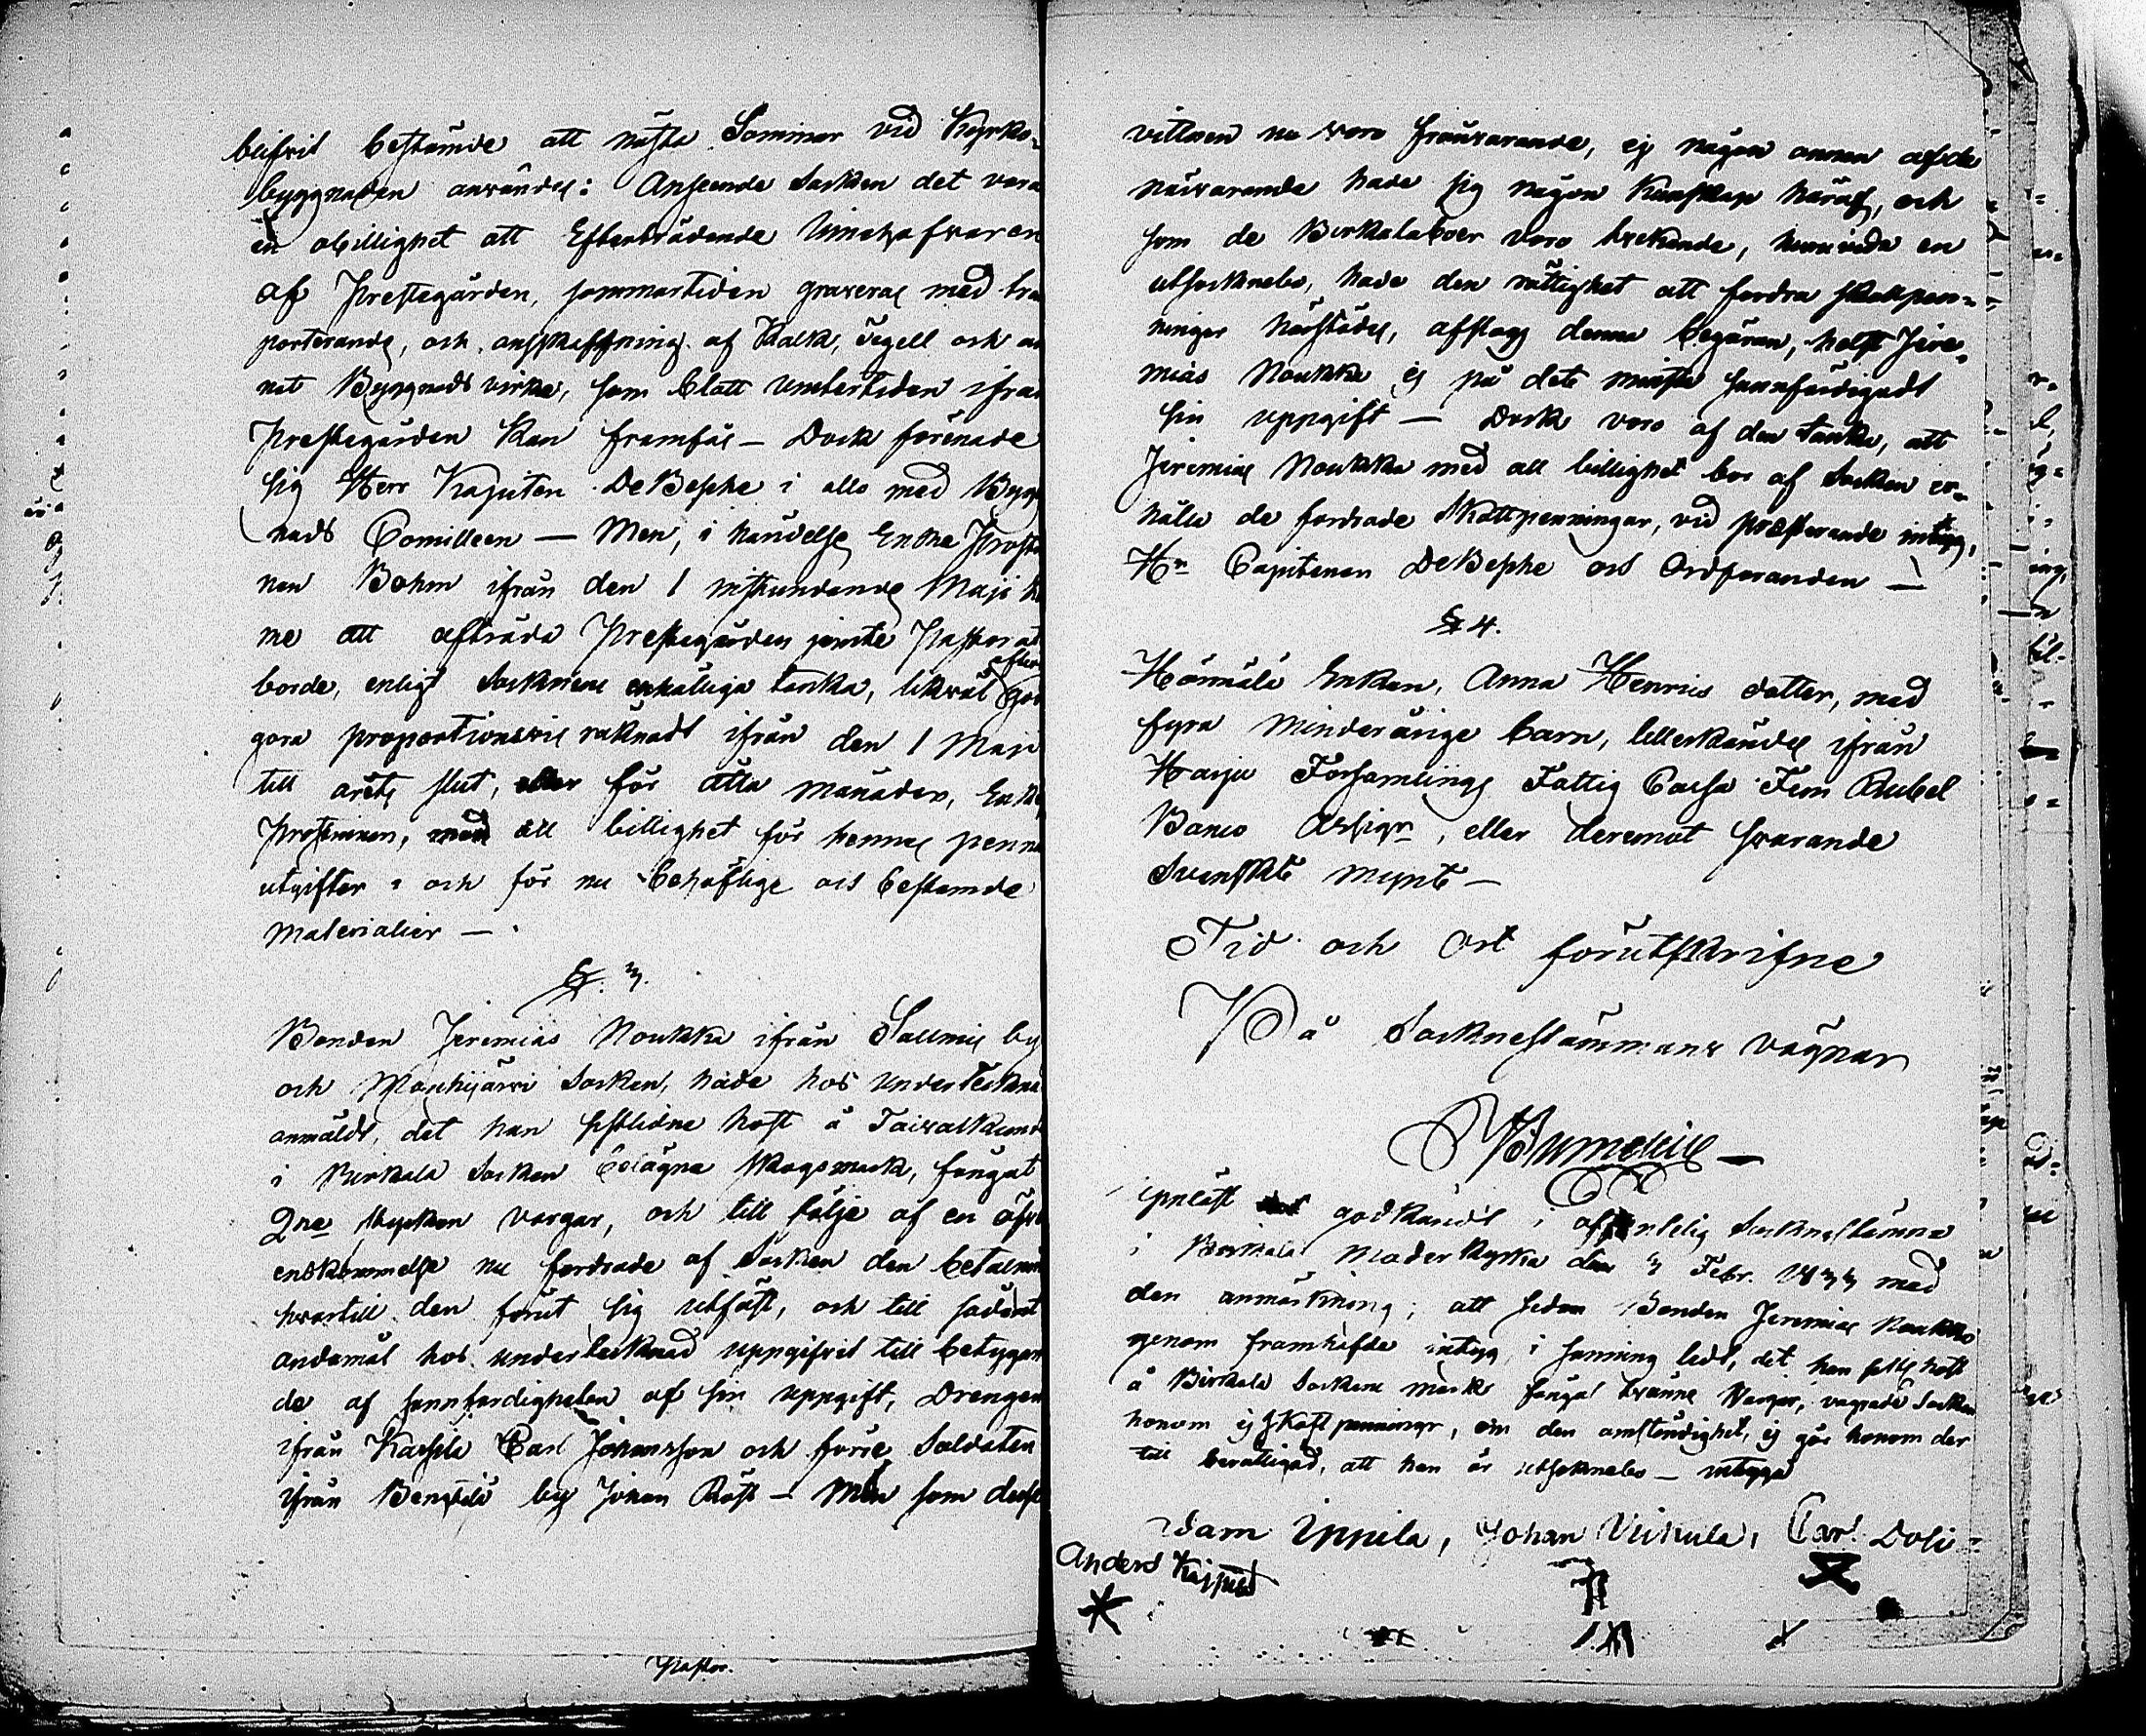 blifvit bestämde att nästa Sommar vid Kyrko-
byggnaden användes: Anseende Socken det vara
en obillighet att Efterträdande innehafvaren
af Prestegården, sommartiden graveras med tra
porterande, och anskaffning af Kalk, Tegell och an
nat Byggnads virke, som blott vintertiden ifrån
Prestegården kan framfås – Dock förenade
sig Herr Kapiten DeBesche i allo med Bygg
nads Comitteen — Men, i händelse Enke Prosti
nan Bohm ifrån den 1 instundande Maji
me att afträda Prestegården jemte Pastorat
borde, enligt Socknens enhälliga tanka, likväl efter
göra proportionsvis räknadt ifrån den 1 Maji
till årets slut, eller för åtta månader, Enke
Prostinnan, med all billighet för hennes penn
utgifter och för nu behöflige och bestämde
Materialier —
§. 3.
Bonden Jeremias Noukka ifrån Sallmis by
och Mouhijärvi Socken, hade hos underteckna
anmäldt, det han sistlidne höst å Taivalkund
i Birkala Socken belägna skogsmark, fångat
2ne stycken vargar, och till följe af en öfve
enskommelse nu fordrade af Socken den betalni
hvartill den förut sig utfäst, och till sådant
ändamål hos undertecknad uppgifvit till betygan
de af sannfärdigheten af sin uppgift, Drengen
ifrån Kassila Carl Johansson och förre Soldaten
ifrån by Johan Röst – Men som desse
Pastor.
vittnen nu voro frånvarande, ej någon annan af de
närvarande hade sig någon kunskap häraf, och
som de Birkalaboer voro tvekande, huruvida en
utsocknebo, hade den rättighet att fordra skottpen-
ningar härstädes, afslogs denna begäran, helst Jere-
mias Noukka ej på det minsta sannfärdigadt
sin uppgift — Dock voro af den tanka, att
Jeremias Noukka med all billighet bör af Socken er-
hålla de fordrade Skottpenningar, vid præsterande intyg,
Hr Capitenen DeBesche och Ordföranden —
§ 4.
Hörmälä Enkan, Anna Henrics dotter, med
fyra Minderårige barn, tillerkändes ifrån
Harju Församlings Fattig Cassa Fem Rubel
Banco Assign, eller deremot svarande
Svenskt mynt —
Tid och Ort förutskrifne
På Socknestämmans vägnar
Uppläst godkändt i offentelig Socknestämma
i Birkala Moderkyrka den 3 Febr. 1833 med
den anmärkning, att sedan Bonden Jeremias Noukka
genom framhafde intyg, i sanning ledt, det han sistl. höst
å Birkala Sockens mark fångat tvänne Vargar, vägrade Socken
honom ej Skottpenningar, om den omständighet, ej gör honom der
till berättigad, att han är utsocknebo – intyga
Adam Yppilä, Johan Uckula, Carl
Anders